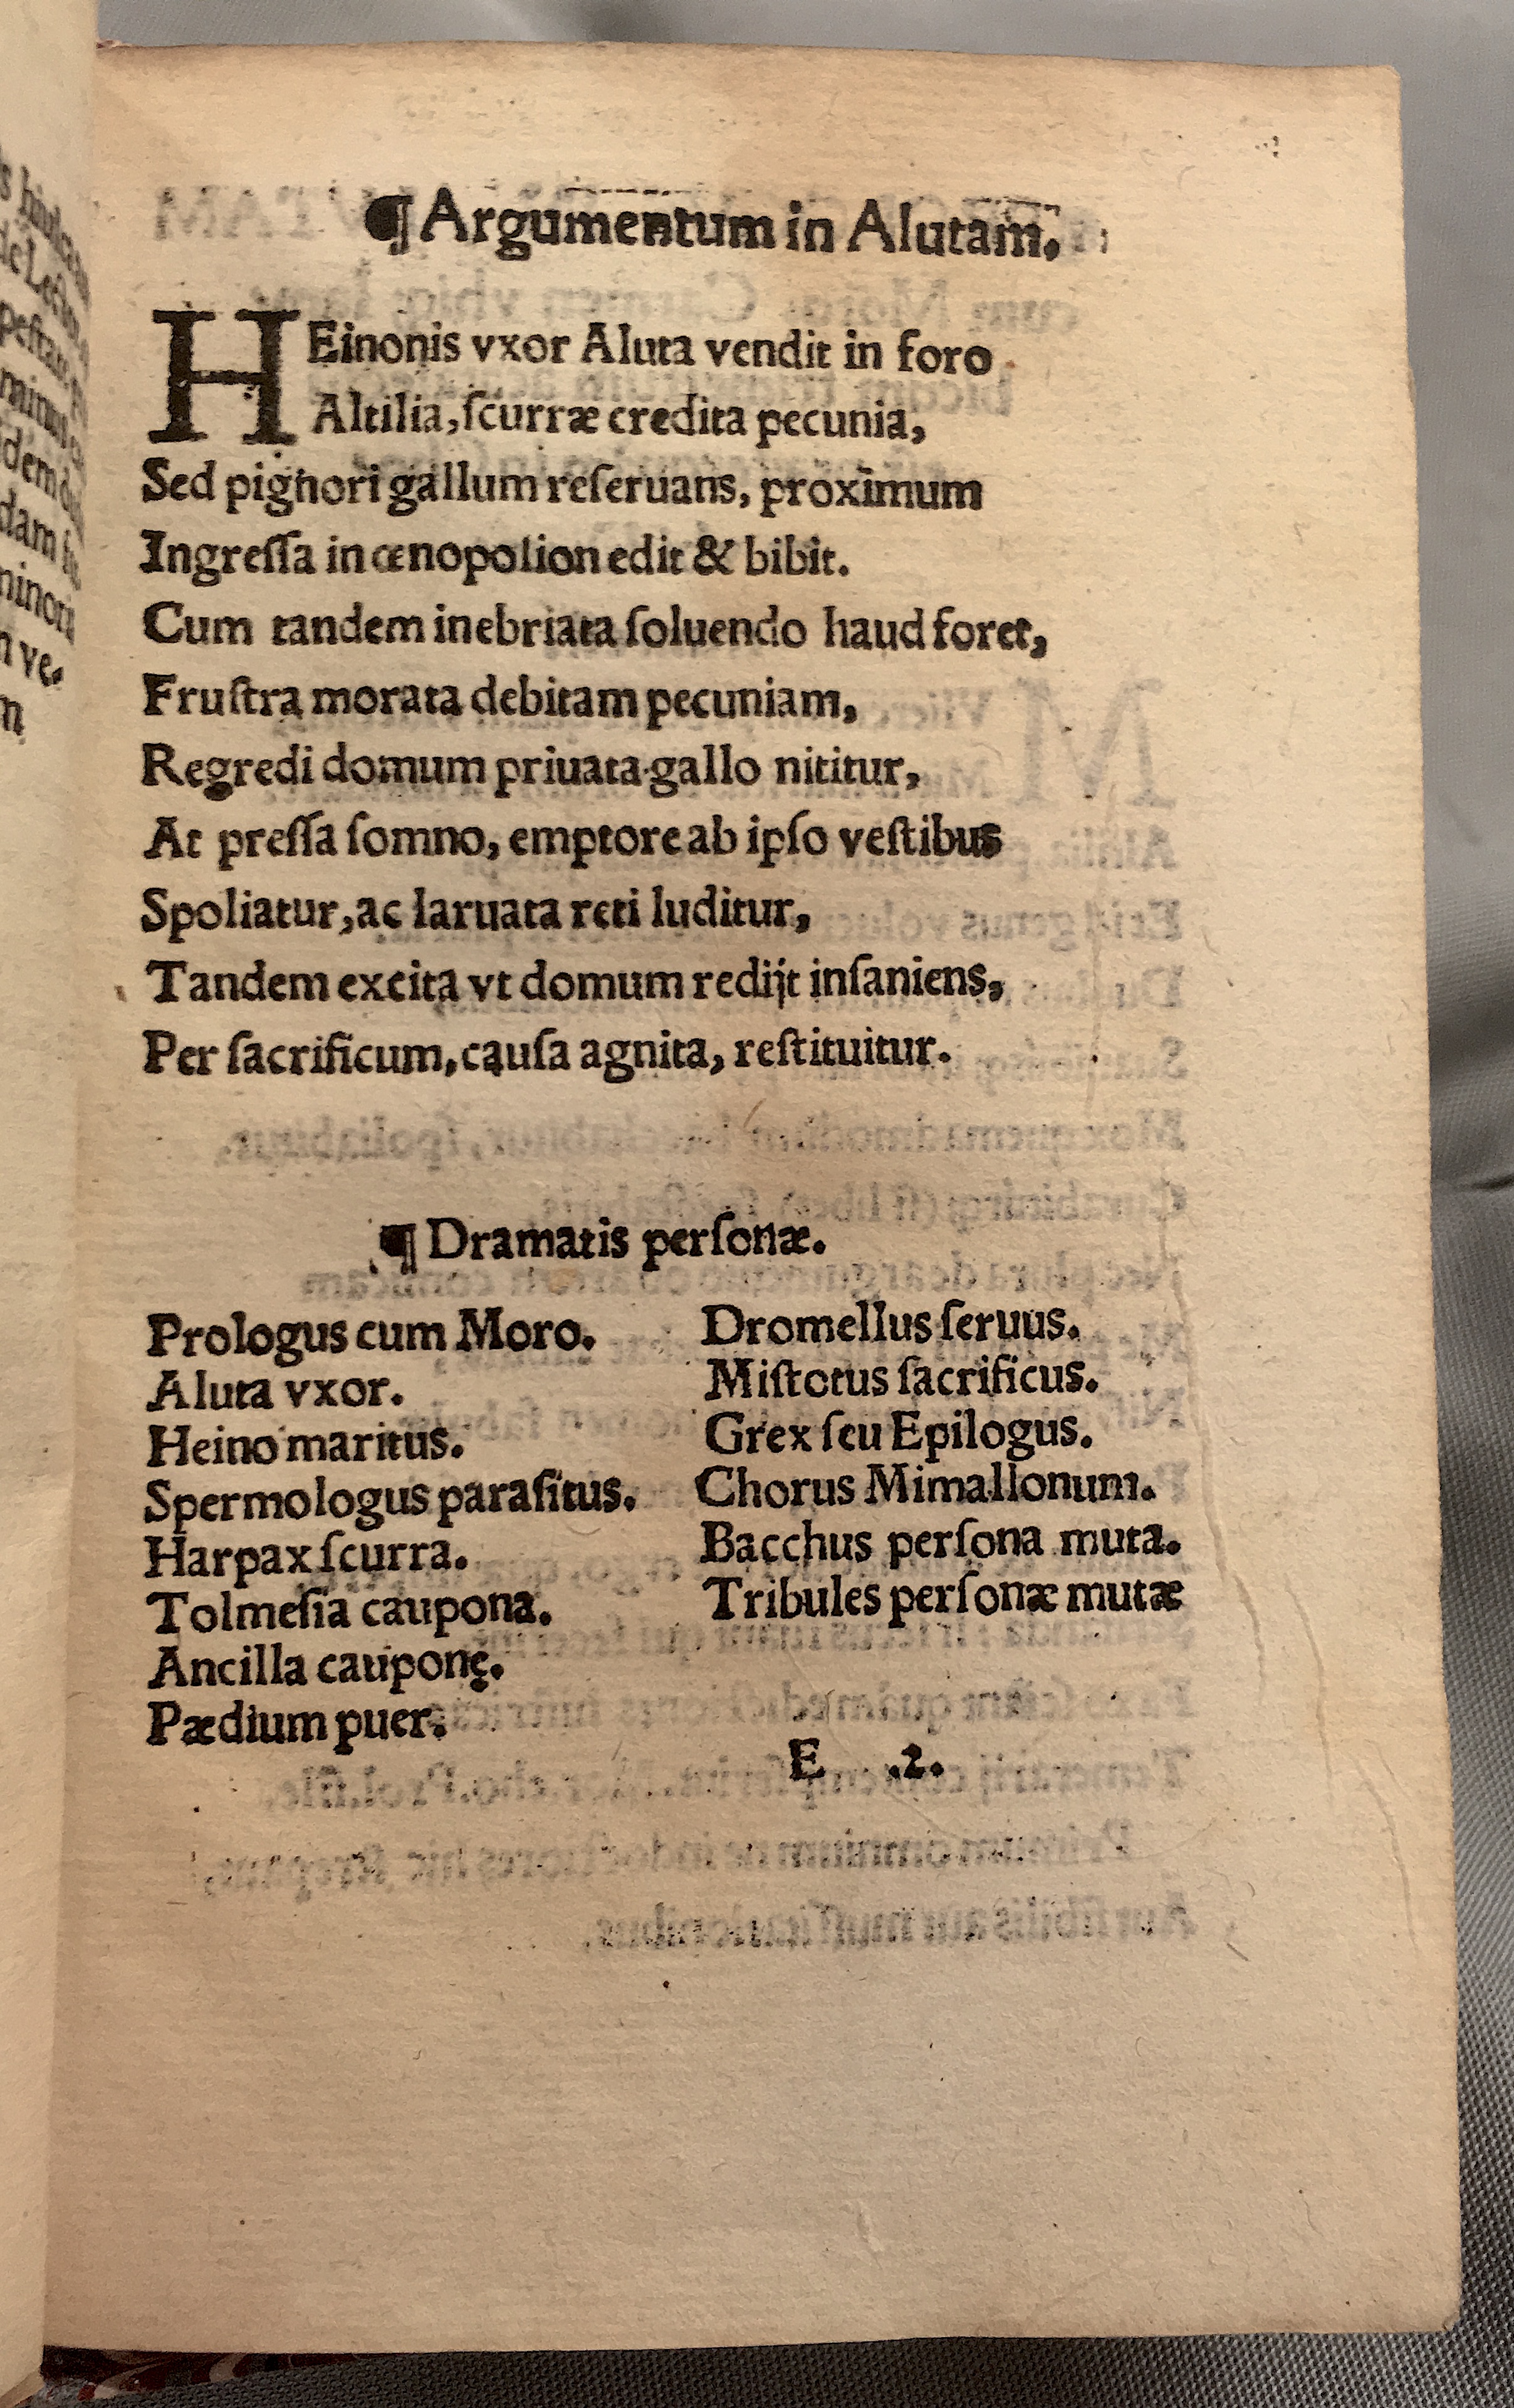 ¶ Argumentum in Alutam.
HEinonis vxor Aluta vendit in foro
Altilia, ſcurræ credita pecunia,
Sed pignori gallum reſeruans, proximum
Ingreſſa in œnopolion edit & bibit.
Cum tandem inebriata ſoluendo haud foret,
Fruſtra morata debitam pecuniam,
Regredi domum priuata gallo nititur,
At preſſa ſomno, emptore ab ipſo veſtibus
Spoliatur, ac laruata reti luditur,
Tandem excita vt domum redijt inſaniens,
Per ſacrificum, cauſa agnita, reſtituitur.
¶ Dramatis perſonæ.
Prologus cum Moro.
Aluta vxor.
Heino maritus.
Spermologus paraſitus.
Harpax ſcurra.
Tolmeſia caupona.
Ancilla cauponę.
Pædium puer.
Dromellus ſeruus.
Miſtotus ſacrificus.
Grex ſeu Epilogus.
Chorus Mimallonum.
Bacchus perſona muta.
Tribules perſonæ mutæ
E .2.